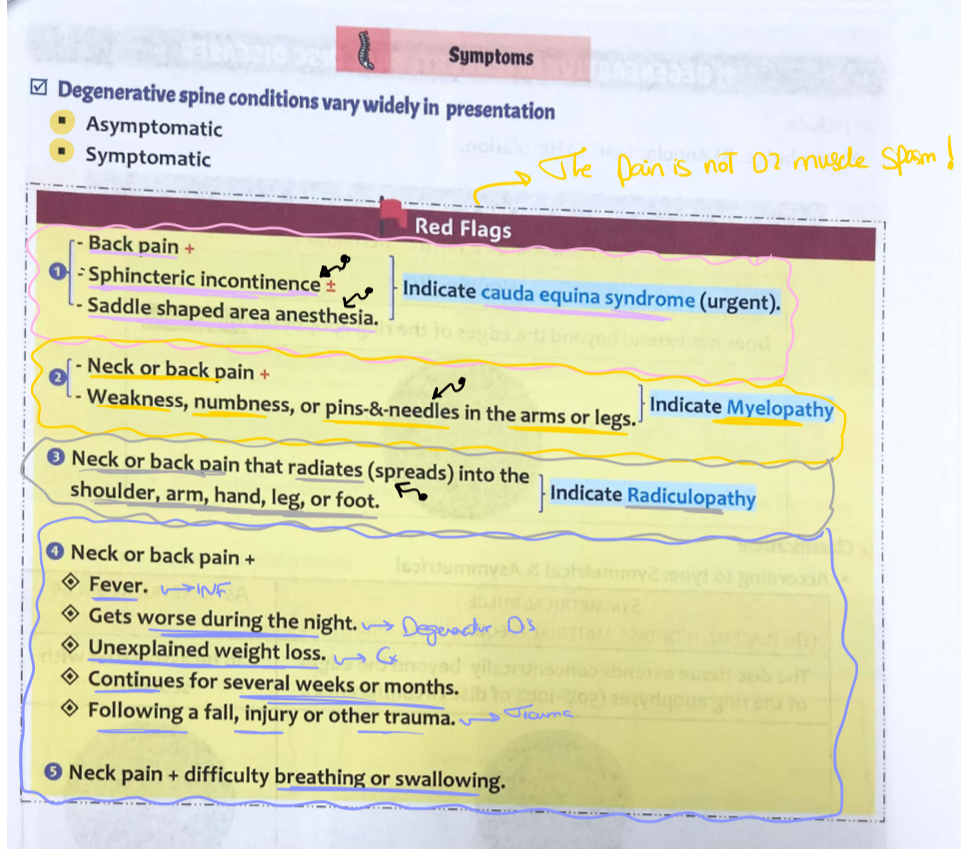 Symptoms
☑ Degenerative spine conditions vary widely in presentation
▪ Asymptomatic
▪ Symptomatic
The pain is not D2 muscle spasm!
Red Flags
1 - Back pain +
- Sphincteric incontinence ±
- Saddle shaped area anesthesia.
Indicate cauda equina syndrome (urgent).
2 - Neck or back pain +
- Weakness, numbness, or pins-&-needles in the arms or legs.
Indicate Myelopathy
3 Neck or back pain that radiates (spreads) into the
shoulder, arm, hand, leg, or foot.
Indicate Radiculopathy
4 Neck or back pain +
Fever. → INF
Gets worse during the night. → Degenerative D's
Unexplained weight loss. → Cx
Continues for several weeks or months.
Following a fall, injury or other trauma. → Trauma
5 Neck pain + difficulty breathing or swallowing.